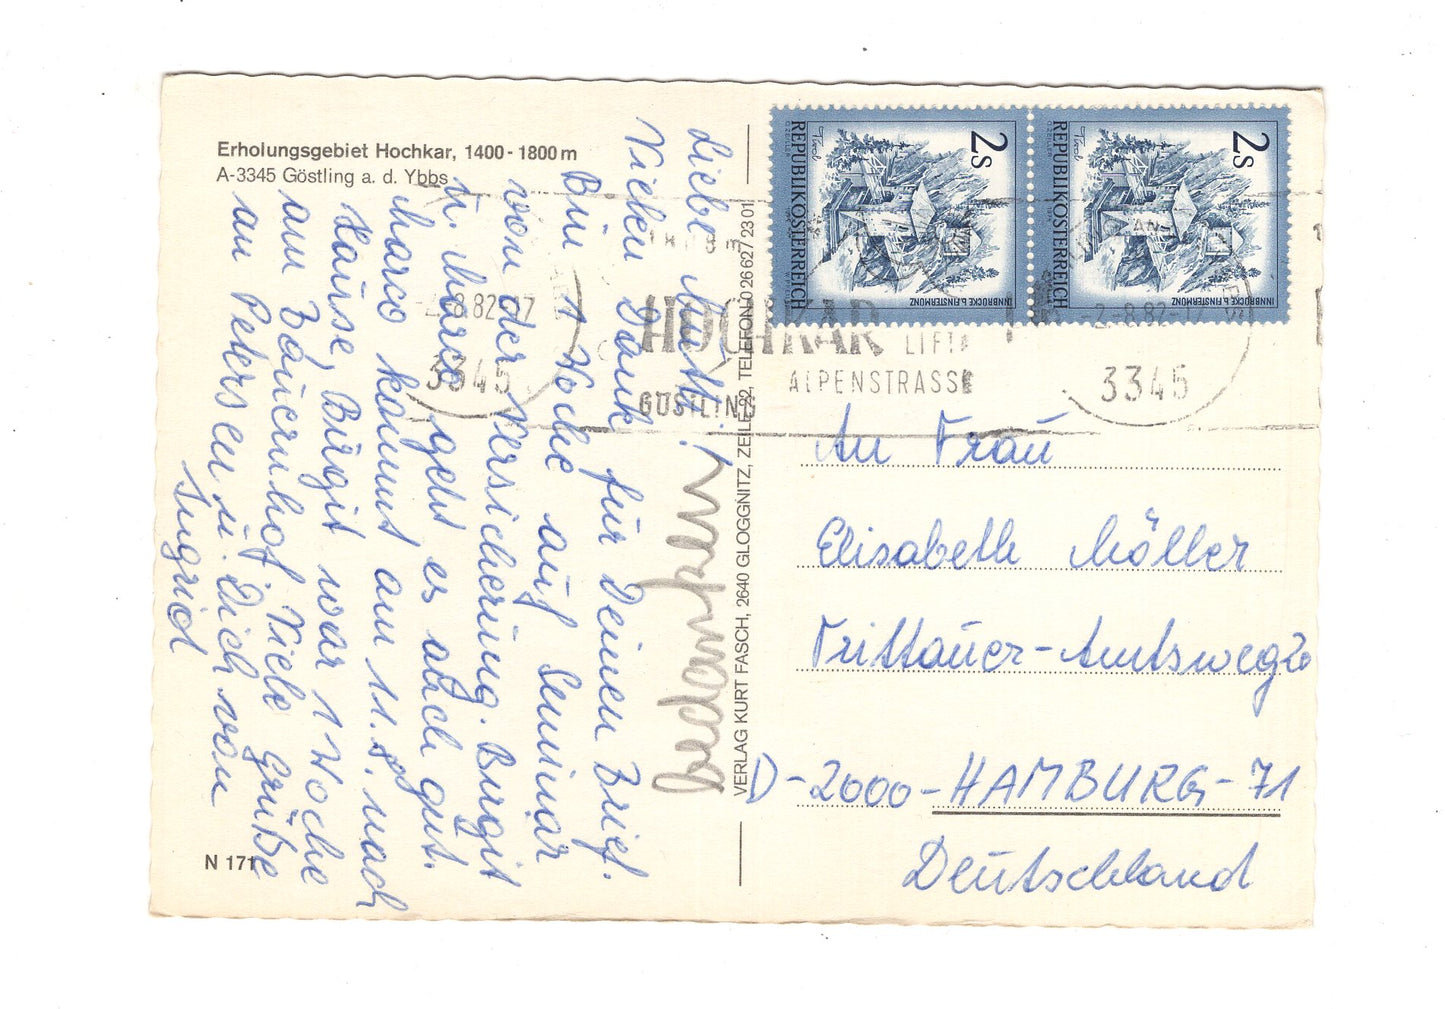 Erholungsgebiet Hochkar, 1400-1800 m
A-3345 Göstling a. d. Ybbs
Liebe Mutti!
Vielen Dank für Deinen Brief.
Bin 1 Woche auf Seminar
von der Versicherung. Burgit
u. Marco geht es auch gut.
Marco kommt am 11.8. nach
Hause, Burgit war 1 Woche
am Bauernhof Viele Grüße
an Petersen u. Dich von
Ingrid
bedanken
N 171
VERLAG KURT FASCH, 2640 GLOGGNITZ, ZEILE 82, TELEFON 0 26 62 / 23 01
2S
REPUBLIK ÖSTERREICH
INNBRÜCKE b FINSTERMÜNZ
Tirol
2S
REPUBLIK ÖSTERREICH
INNBRÜCKE b FINSTERMÜNZ
Tirol
-2.-8.82-17
3345
HOCHKAR
GÖSTLING
LIFTE
ALPENSTRASSE
-2.-8.82-17
3345
An Frau
Elisabeth Möller
Trittauer-Amtsweg 20
D-2000-HAMBURG-71
Deutschland